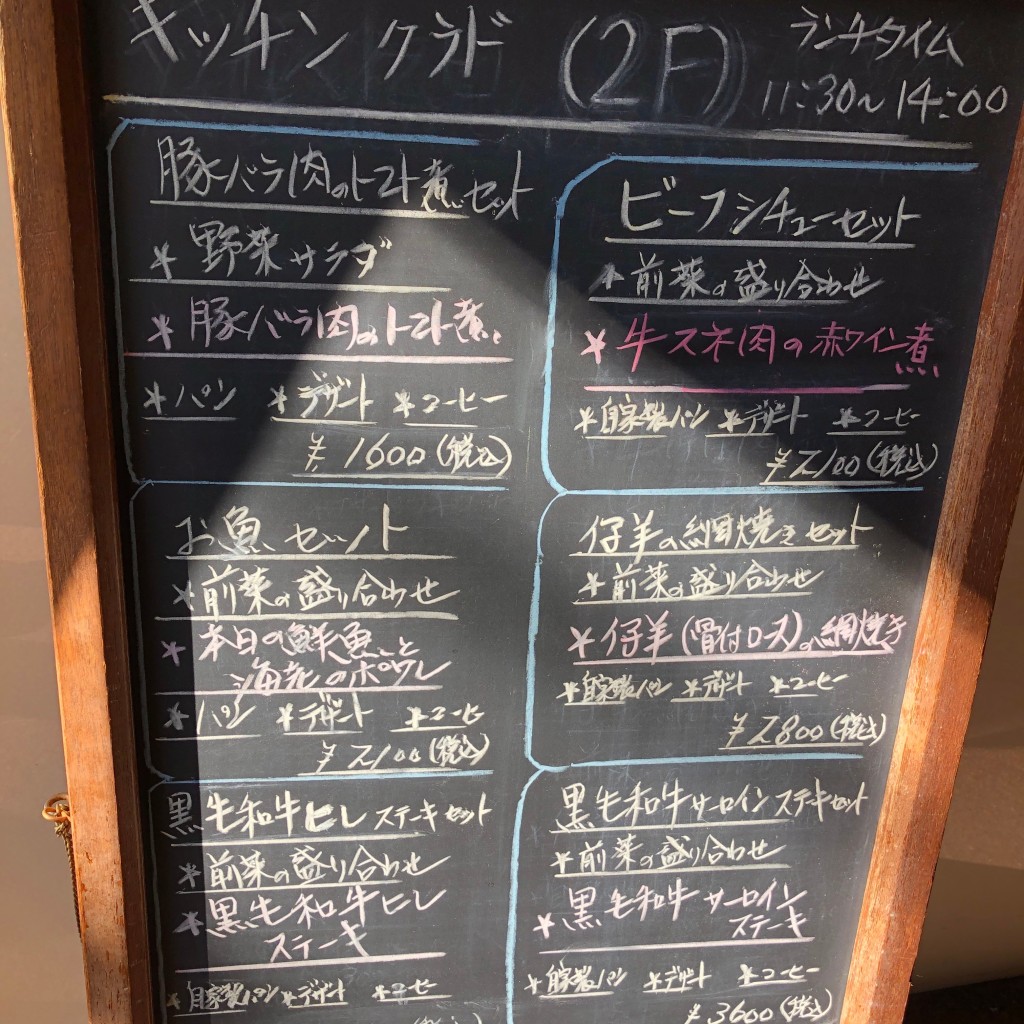 キッチン クラド (2F)
ランチタイム
11:30~14:00
豚バラ肉のトマト煮セット
* 野菜サラダ
* 豚バラ肉のトマト煮
* パン * デザート * コーヒー
¥1600(税込)
ビーフシチューセット
* 前菜の盛り合わせ
* 牛スネ肉の赤ワイン煮
* 自家製パン * デザート * コーヒー
¥2100(税込)
お魚セット
* 前菜の盛り合わせ
* 本日の鮮魚と
海老のポワレ
* パン * デザート * コーヒー
¥2100(税込)
仔羊の網焼きセット
* 前菜の盛り合わせ
* 仔羊(骨付ロース)の網焼き
* 自家製パン * デザート * コーヒー
¥2800(税込)
黒毛和牛ヒレステーキセット
* 前菜の盛り合わせ
* 黒毛和牛ヒレ
ステーキ
* 自家製パン * デザート * コーヒー
黒毛和牛サーロインステーキセット
* 前菜の盛り合わせ
* 黒毛和牛サーロイン
ステーキ
* 自家製パン * デザート * コーヒー
¥3600(税込)